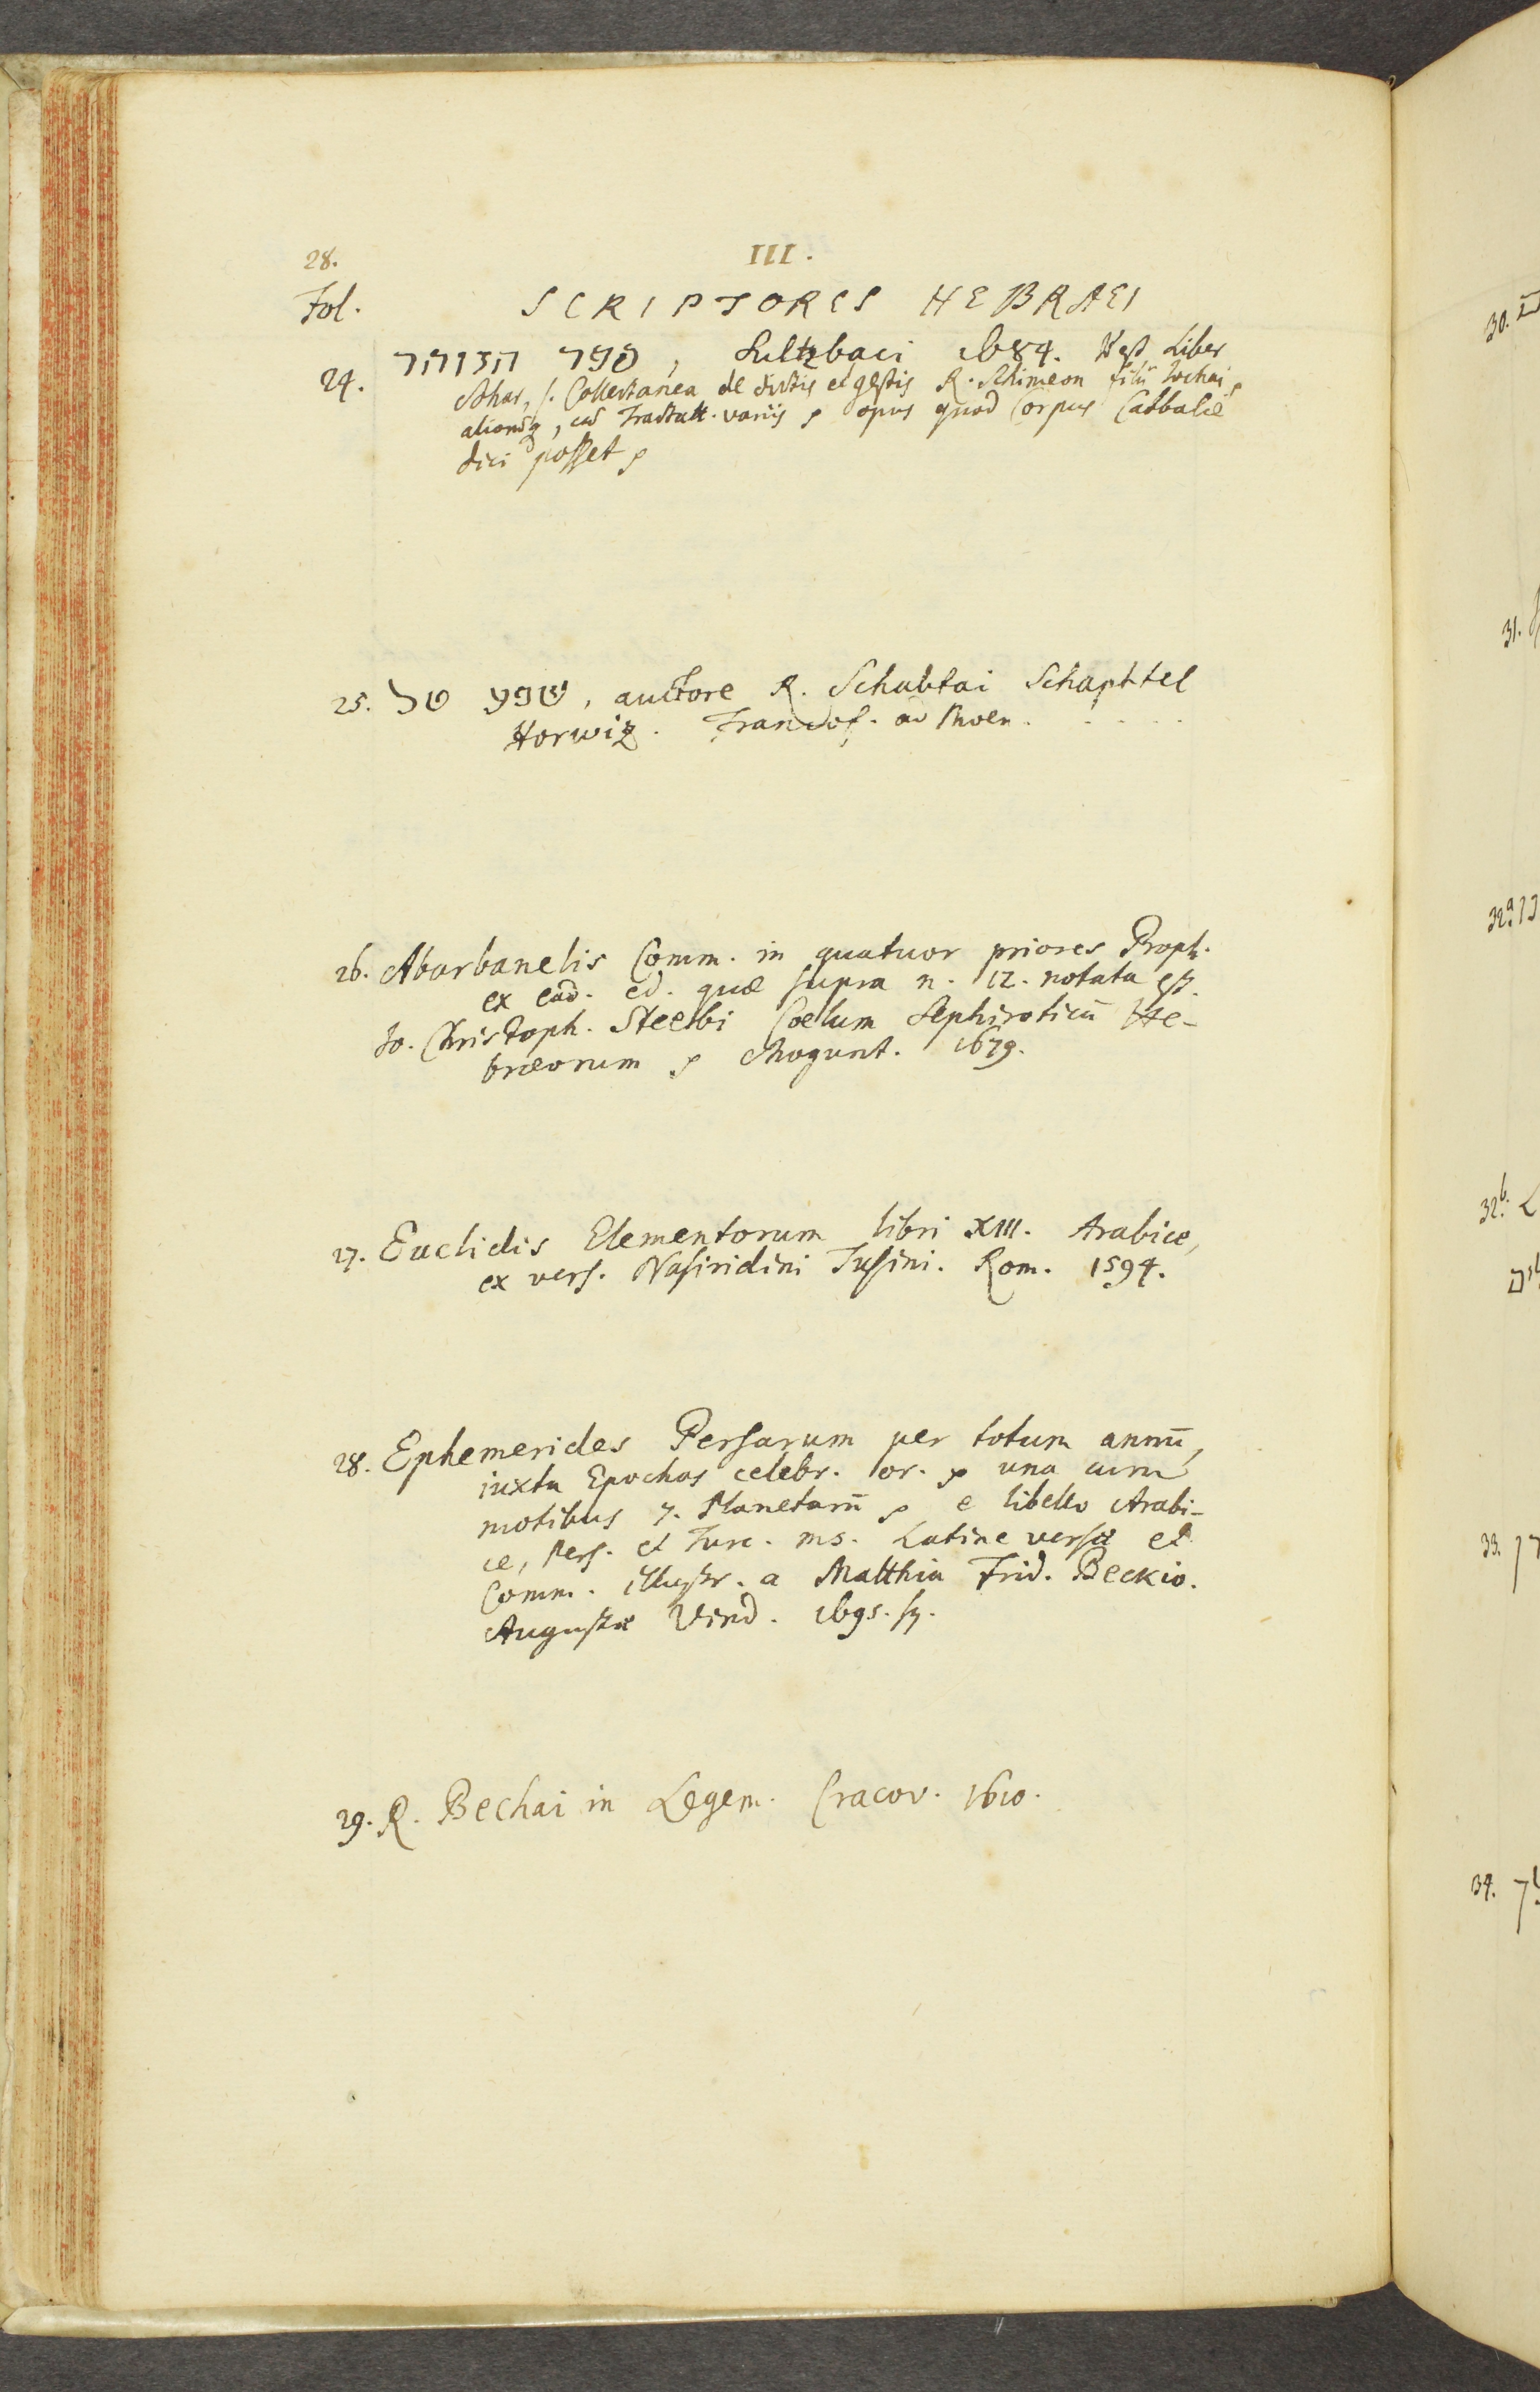 28.
III.
Fol.
SCRIPTORES HEBRAEI
24. ספר הזוהר, Sultzbaci 1684. Id est Liber
Sohar, s. Collectanea de dictis et gestis R. Schimeon filii Jochai,
aliorūq, cū Tractatt. variis, opus quod Corpus Cabbalæ
dici posset,
25. שפע טל, auctore R. Schabtai Schephtel
Horwiz. Francof. ad Moen. . . . .
26. Abarbanelis Comm. in quatuor priores Proph.
ex ead. ed. quæ supra n. 12. notata est.
Jo. Christoph. Steebi Coelum Sephiroticū He-
bræorum, Mogunt. 1679.
27. Euclidis Elementorum libri XIII. Arabice,
ex vers. Nasiridini Tusini. Rom. 1594.
28. Ephemerides Persarum per totum annū,
iuxta Epochas celebr. or. una cum
motibus 7. Planetarū e libello Arabi-
ce, Pers. et Turc. ms. Latine versæ et
Comm. illustr. a Matthia Frid. Beckio.
Augustæ Vind. 1695. sq.
29. R. Bechai in Legem. Cracov. 1610.
30.
31.
32.a
32.b
33.
34.